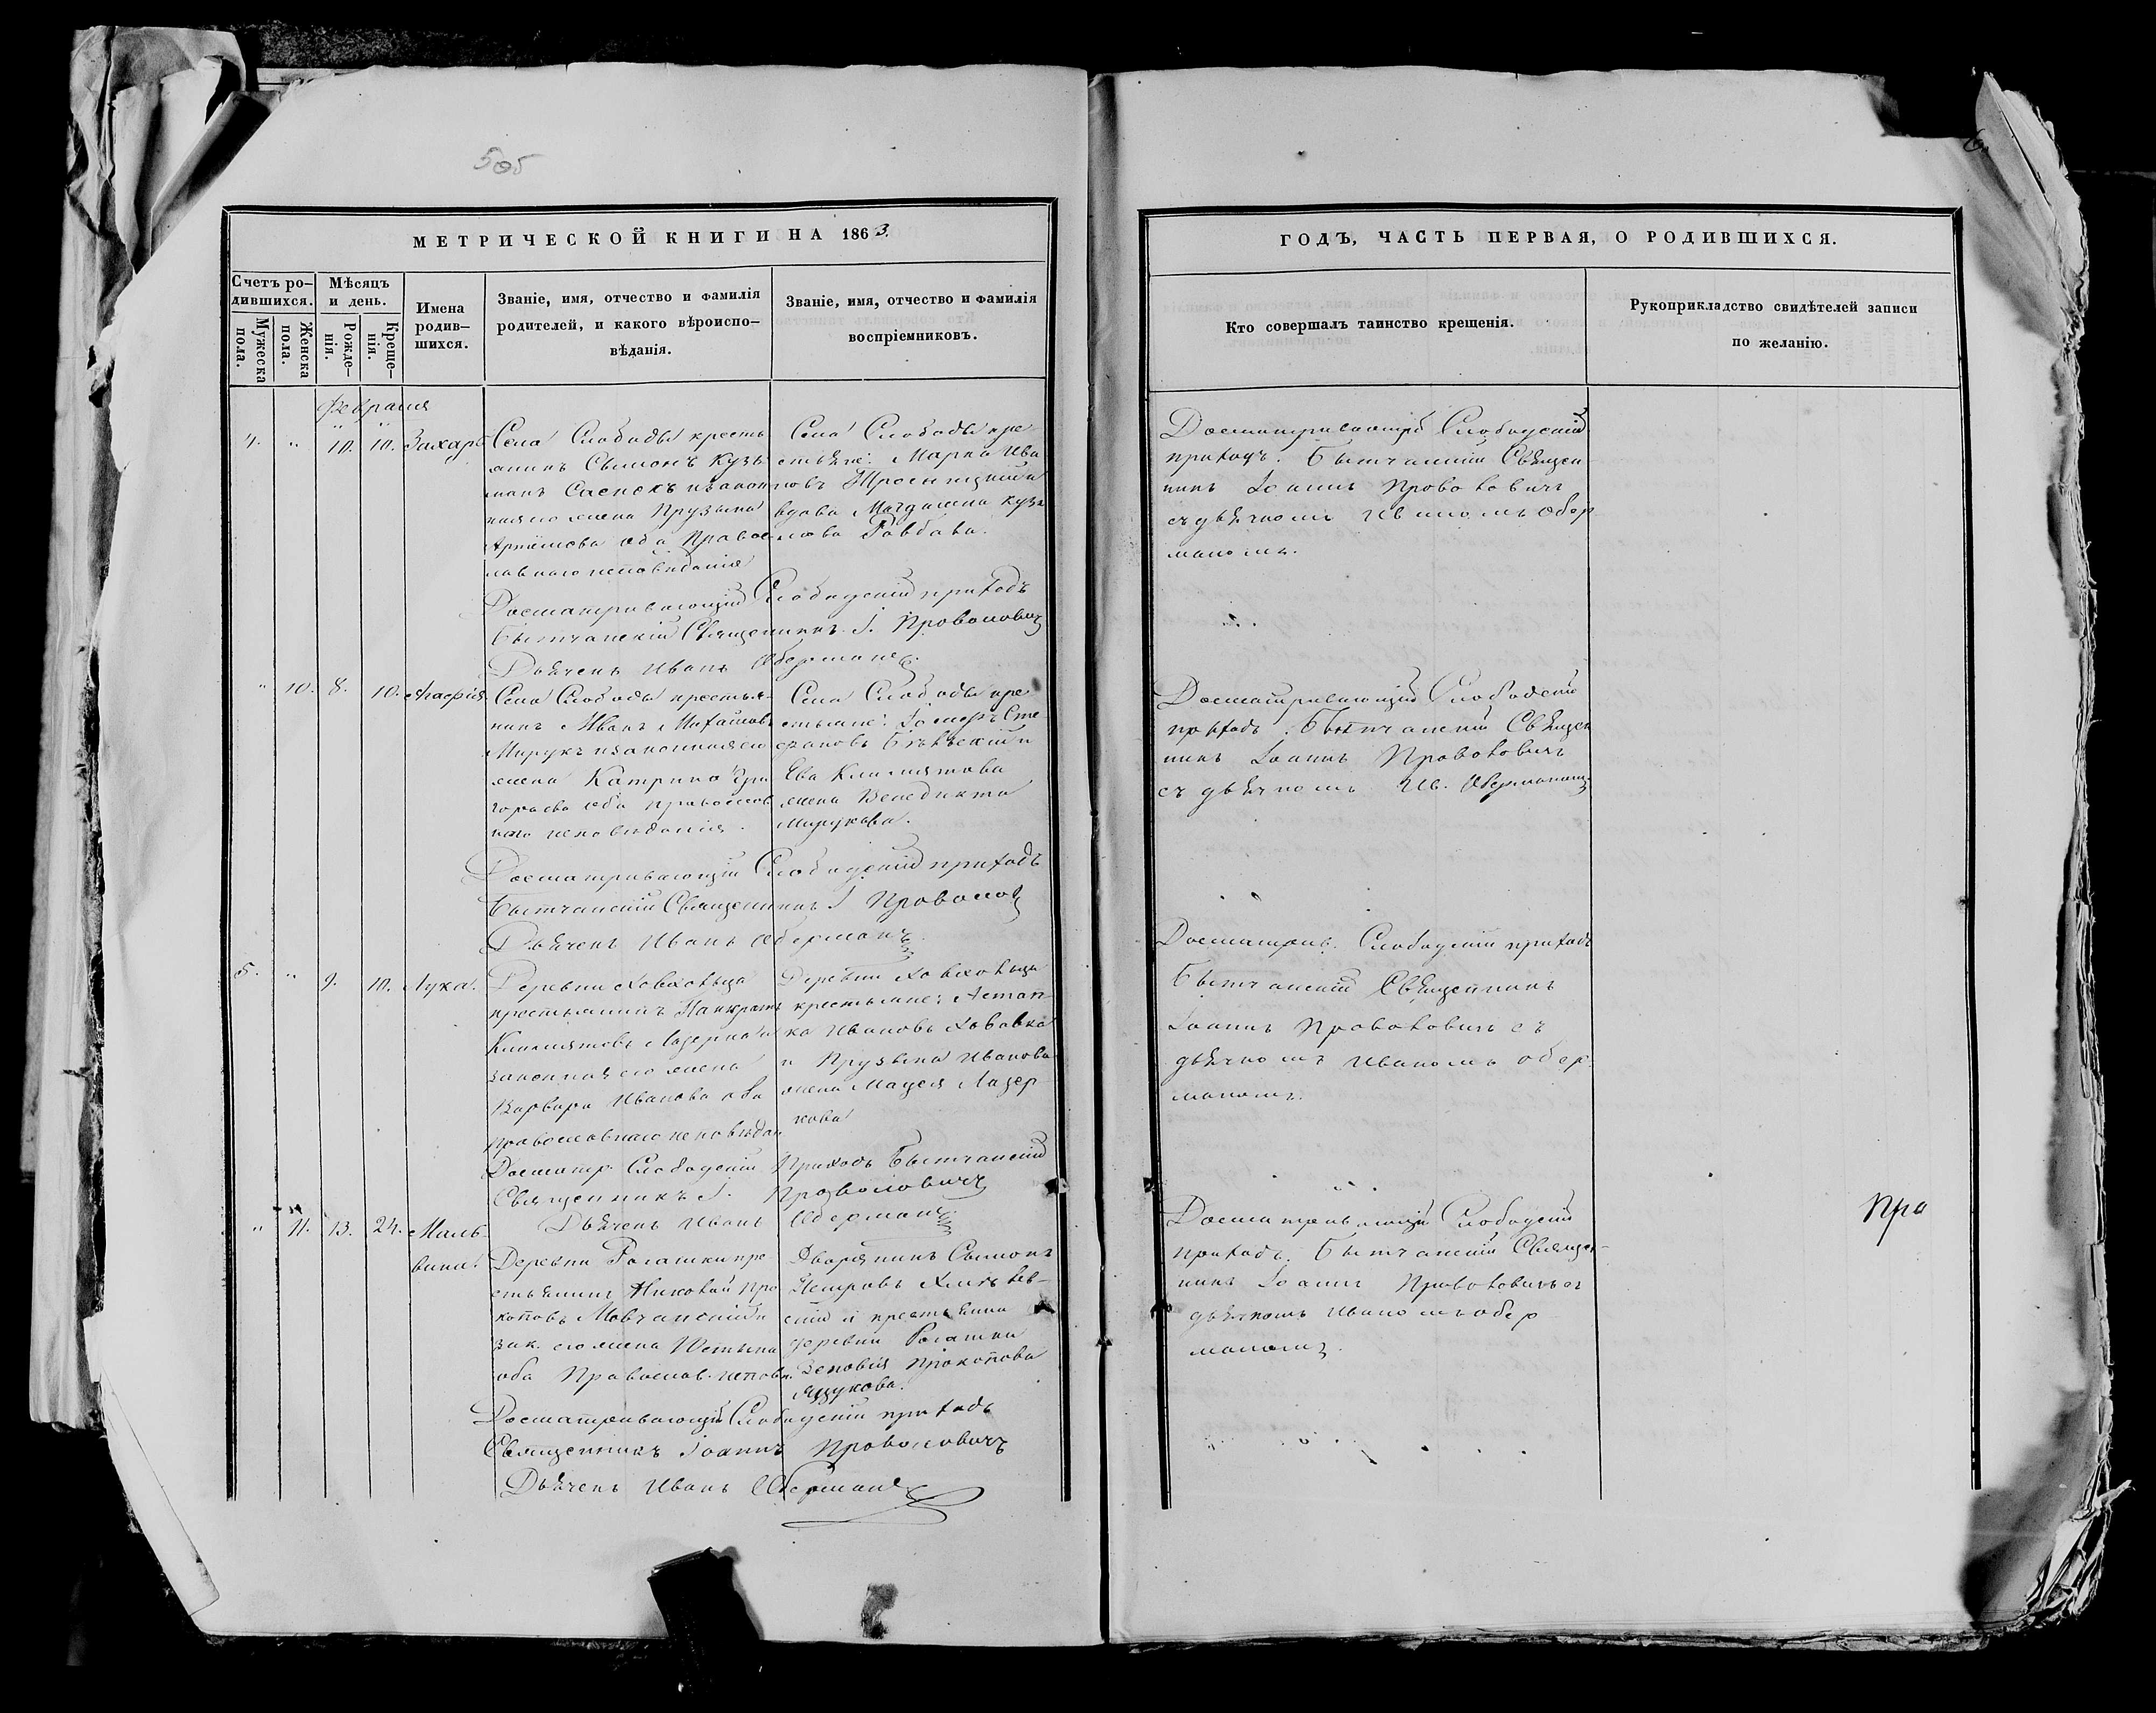 5об
6.
МЕТРИЧЕСКОЙ КНИГИ НА 1863.
Счетъ ро-
дившихся.
Мужеска
пола.
Женска
пола.
Мѣсяцъ
и день.
Рожде-
нія.
Креще-
нія.
Имена
родив-
шихся.
Званіе, имя, отчество и фамилія
родителей, и какого вѣроиспо-
вѣданія.
Званіе, имя, отчество и фамилія
воспріемниковъ.
Февраля
4. " 10. 10. Захарій
Села Слободы кресть
янинъ Сымонъ Кузь
мичъ и законная
его жена Прузына
Артёмова оба Правос
лавнаго исповѣданія
Села Слободы кре
стьяне: Марко Ива
новъ и
вдова Магдалена Кузь
мова
Досматривающій Слободскій приходъ
Бытчанскій Священникъ І. Проволовичъ
Дьячекъ Иванъ Оберманъ
" 10. 8. 10. Агафія
Села Слободы крестья
нинъ Иванъ
Мирукъ и законная его
жена Катрина Гри
горьева оба православ
наго исповѣданія.
Села Слободы кре
стьяне: Іосифъ Сте
фановъ и
Ева Климятова
жена Венедикта
Мирукова.
Досматривающій Слободскій приходъ
Бытчанскій Священникъ І. Проволов
Дьячекъ Иванъ Оберманъ
5. " 9. 10. Лука.
Деревни
крестьянинъ Панкратъ
Климятовъ Лазерко и
законная его жена
Варвара Иванова оба
православнаго исповѣдан.
Деревни
крестьяне: Астап-
ко Ивановъ
и Прузына Иванова
жена Мацея Лазер
кова
Досматр. Слободскій Приходъ Бытчанскій
Священникъ І. Проволовичъ
Дьячекъ Иванъ Оберманъ
" 11. 13. 24. Маль-
вина.
Деревни Рогатки кре
стьянинъ Николай Про
коповъ Мовчанскій и
зак. его жена Юстына
оба Православ. исповѣд.
Дворянинъ Сымонъ
Петровъ
скій и крестьянка
деревни Рогатки
Зеновія Прокопова
Яцукова.
Досматривающій Слободскій приходъ
Священникъ Іоаннъ Проволовичъ
Дьячекъ Иванъ Оберманъ
ГОДЪ, ЧАСТЬ ПЕРВАЯ, О РОДИВШИХСЯ.
Кто совершалъ таинство крещенія.
Рукоприкладство свидѣтелей записи
по желанію.
Досматривающій Слободскій
приходъ. Бытчанскій Священ
никъ Іоаннъ Проволовичъ
съ дьячкомъ Иваномъ Обер
маномъ.
Досматривающій Слободскій
приходъ. Бытчанскій Священ
никъ Іоаннъ Проволовичъ
съ дьячкомъ Ив. Оберманомъ
Досматрив. Слободскій приходъ
Бытчанскій Священникъ
Іоаннъ Проволовичъ съ
дьячкомъ Иваномъ Обер
маномъ.
Досматривающій Слободскій
приходъ. Бытчанскій Священ-
никъ Іоаннъ Проволовичъ съ
дьячкомъ Иваномъ Обер
маномъ.
Про